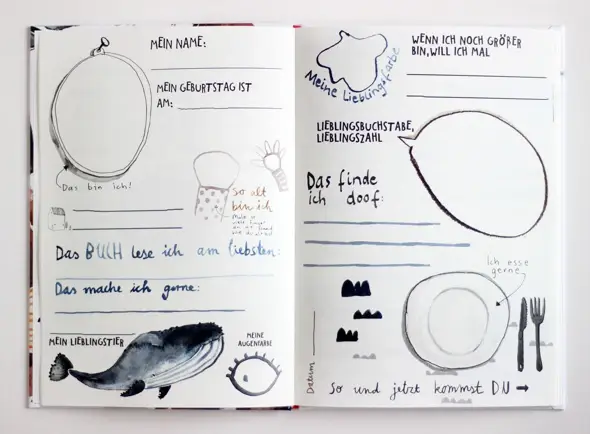 MEIN NAME:
MEIN GEBURTSTAG IST
AM:
Das bin ich!
so alt
bin ich
Das BUCH lese ich am liebsten:
Das mache ich gerne:
MEIN LIEBLINGSTIER
MEINE
AUGENFARBE
Meine Lieblingsfarbe
WENN ICH NOCH GRÖßER
BIN, WILL ICH MAL
LIEBLINGSBUCHSTABE,
LIEBLINGSZAHL
Das finde
ich doof:
Ich esse
gerne
Datum
so und jetzt kommst DU →